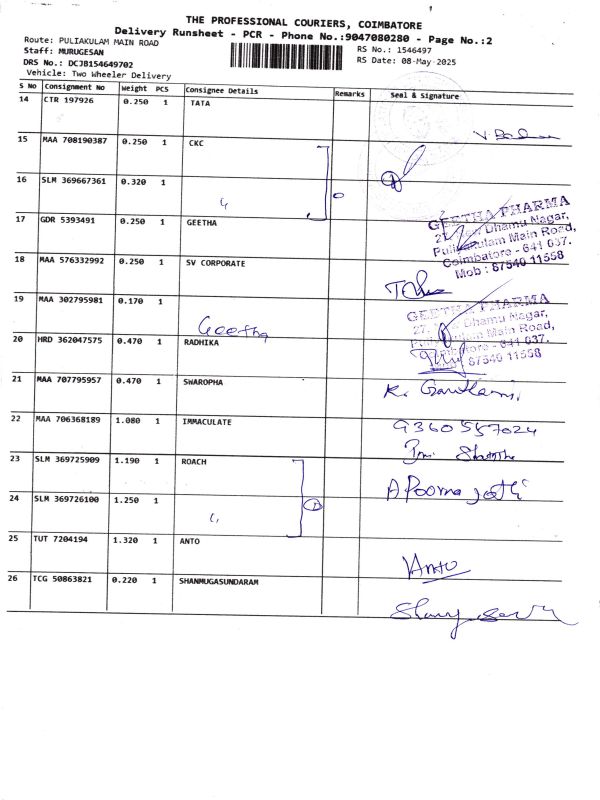 THE PROFESSIONAL COURIERS, COIMBATORE
Delivery Runsheet - PCR - Phone No.:9047080280 - Page No.:2
Route: PULIAKULAM MAIN ROAD
Staff: MURUGESAN
DRS No.: DCJB154649702
Vehicle: Two Wheeler Delivery
RS No.: 1546497
RS Date: 08-May-2025
S No Consignment No Weight PCS Consignee Details Remarks Seal & Signature
14 CTR 197926 0.250 1 TATA
15 MAA 708190387 0.250 1 CKC
16 SLM 369667361 0.320 1
17 GDR 5393491 0.250 1 GEETHA
GEETHA PHARMA
Dhamu Nagar,
Puliakulam Main Road,
Coimbatore - 641 037.
Mob : 87540 11558
18 MAA 576332992 0.250 1 SV CORPORATE
19 MAA 302795981 0.170 1 Geetha
GEETHA PHARMA
27, Dhamu Nagar,
Main Road,
641 037.
87540 11558
20 HRD 362047575 0.470 1 RADHIKA
21 MAA 707795957 0.470 1 SWAROPHA
22 MAA 706368189 1.080 1 IMMACULATE
9360557024
23 SLM 369725909 1.190 1 ROACH
24 SLM 369726100 1.250 1
25 TUT 7204194 1.320 1 ANTO
Anto
26 TCG 50863821 0.220 1 SHANMUGASUNDARAM